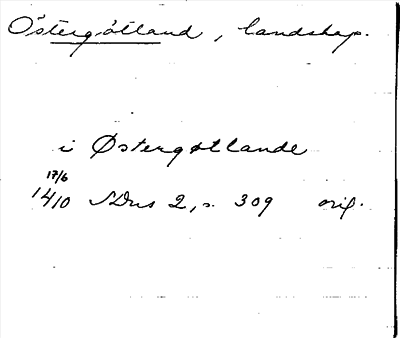 Östergötland, landskap.
i Østergøtlande
17/6
1410 SDns 2, s. 309 orig.